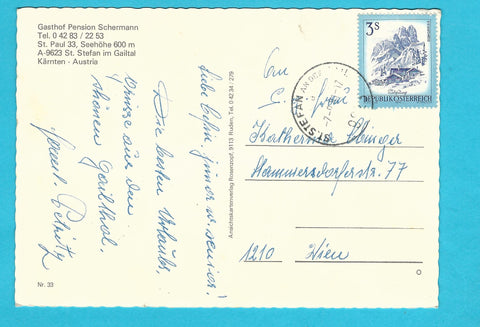 Gasthof Pension Schermann
Tel. 0 42 83 / 22 53
St. Paul 33, Seehöhe 600 m
A-9623 St. Stefan im Gailtal
Kärnten - Austria
Liebe
junior u. senior!
Die besten Urlaubs-
grüsse aus dem
schönen Gailtal.
Fam.
Nr. 33
Ansichtskartenverlag Rosenzopf, 9113 Ruden, Tel. 0 42 34 / 229
3S
REPUBLIK ÖSTERREICH
ST. STEFAN
An
Katharina Ebinger
77
1210 Wien